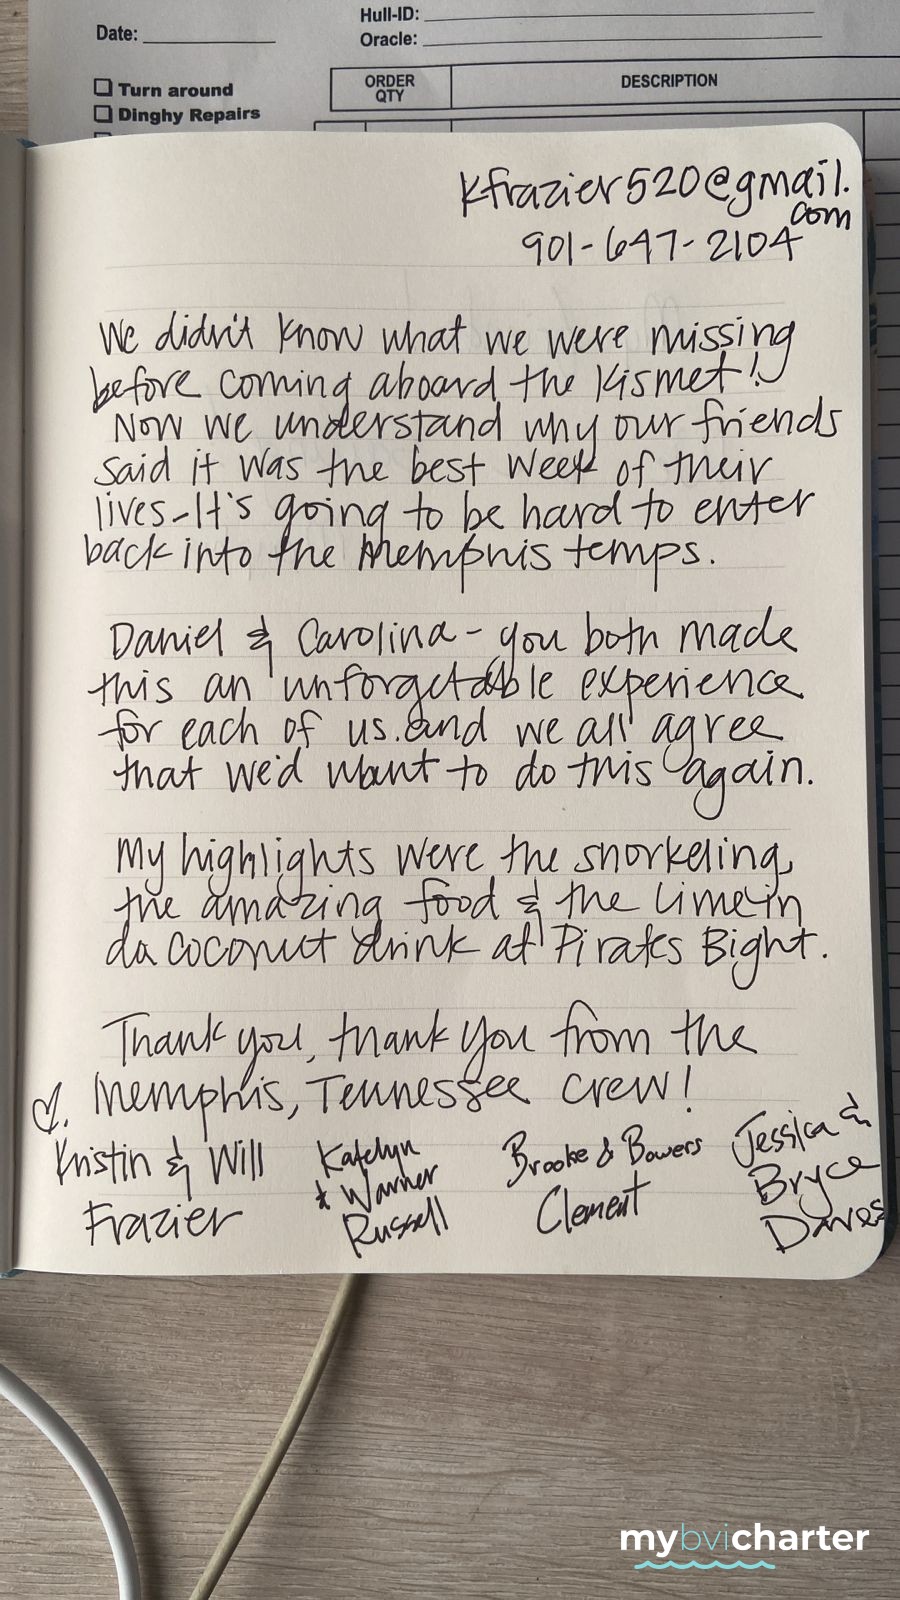 Hull-ID:
Date:
Oracle:
Turn around
ORDER QTY
DESCRIPTION
Dinghy Repairs
kfrazier520@gmail.
com
901-647-2104
We didn't know what we were missing
before coming aboard the Kismet!
Now we understand why our friends
said it was the best week of their
lives - It's going to be hard to enter
back into the Memphis temps.
Daniel & Carolina - you both made
this an unforgetable experience
for each of us. and we all agree
that we'd want to do this again.
My highlights were the snorkeling,
the amazing food & the Lime in
da Coconut drink at Pirates Bight.
Thank you, thank you from the
Memphis, Tennessee crew!
Kristin & Will
Frazier
Katelyn
& Warner
Russell
Brooke & Bowers
Clement
Jessica &
Bryce
Davies
mybvicharter